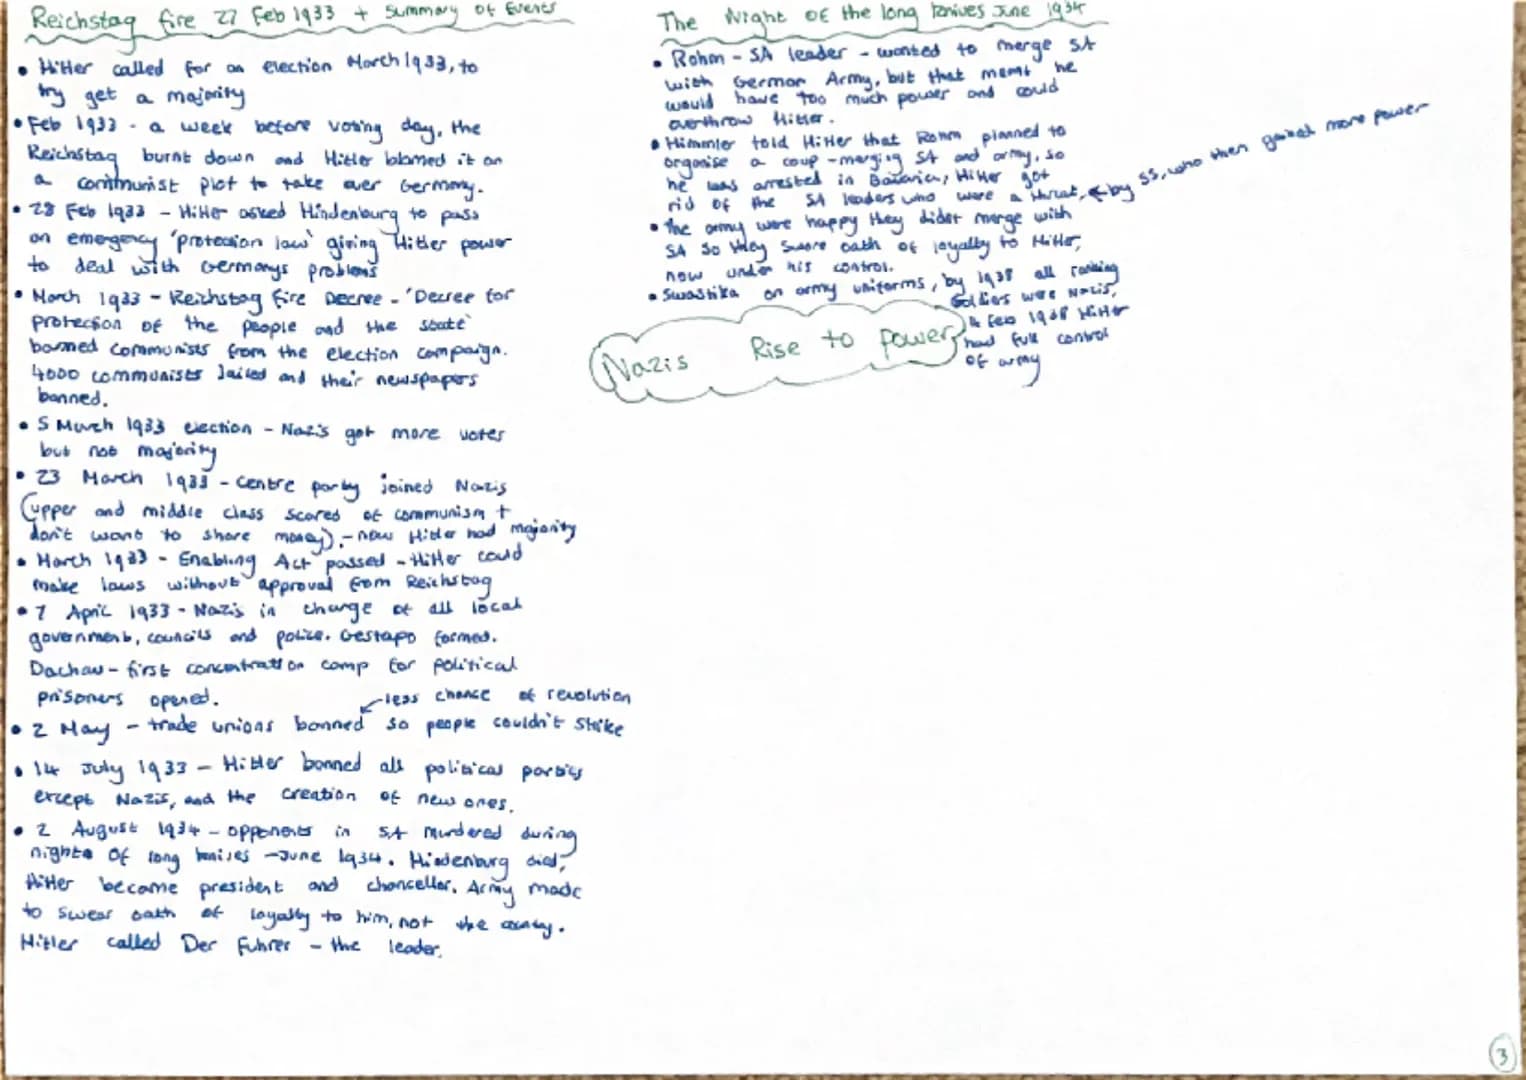 Reichstag fire 27 Feb 1933 + Summary of Events
• Hitler called for an election March 1933, to
try get a majority
• Feb 1933 - a week before voting day, the
Reichstag burnt down and Hitler blamed it on
a communist plot to take over Germany.
• 28 Feb 1933 - Hitler asked Hindenburg to pass
an emergency 'protection law' giving Hitler power
to deal with Germanys problems
• March 1933 - Reichstag Fire Decree - 'Decree for
protection of the people and the state'
banned communists from the election campaign.
4000 communists Jailed and their newspapers
banned.
• 5 March 1933 election - Nazis got more votes
but not majority
• 23 March 1933 - Centre party joined Nazis
(upper and middle class scared of communism +
don't want to share money) - now Hitler had majority
• March 1933 - Enabling Act passed - Hitler could
make laws without approval from Reichstag
• 7 April 1933 - Nazis in charge of all local
government, councils and police. Gestapo formed.
Dachau - first concentration camp for political
prisoners opened.
less chance of revolution
• 2 May - trade unions banned so people couldn't strike
• 14 July 1933 - Hitler banned all political parties
except Nazis, and the creation of new ones.
• 2 August 1934 - opponents in SA murdered during
night of long knives - June 1934. Hindenburg died,
Hitler became president and chancellor. Army made
to swear oath of loyalty to him, not the country.
Hitler called Der Fuhrer - the leader.
The Night of the long knives June 1934
• Rohm - SA leader - wanted to merge SA
with German Army, but that meant he
would have too much power and could
overthrow Hitler.
• Himmler told Hitler that Rohm planned to
organise a coup - merging SA and army, so
he was arrested in Bavaria, Hitler got
rid of the SA leaders who were a threat, by SS, who then gained more power
• The army were happy they didnt merge with
SA so they swore oath of loyalty to Hitler,
now under his control.
• Swastika on army uniforms, by 1938 all ranking
soldiers were Nazis,
4 Feb 1938 Hitler
had full control
of army
Nazis Rise to power
3